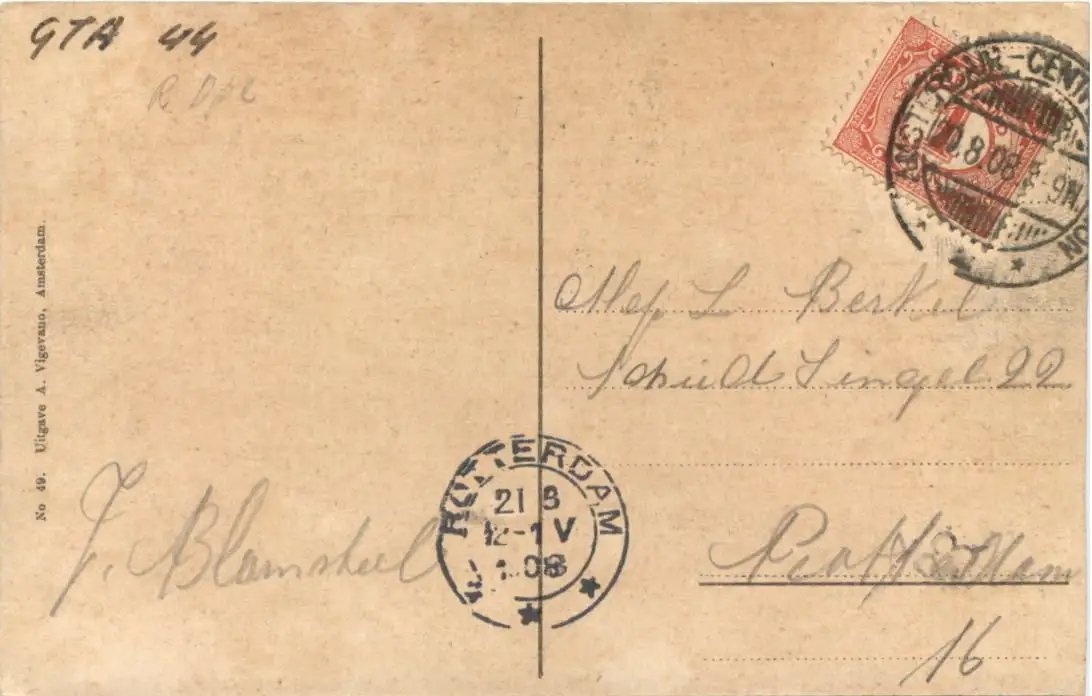 GTA 44
R
No 49. Uitgave A. Vigevano, Amsterdam.
J. Blamsteel
AMSTERDAM-CENTR
20.8.08 8-9N
1
Mej L Berkel
Schied Singel 22
Rotterdam
16
ROTTERDAM
21 8
12-1 V
08